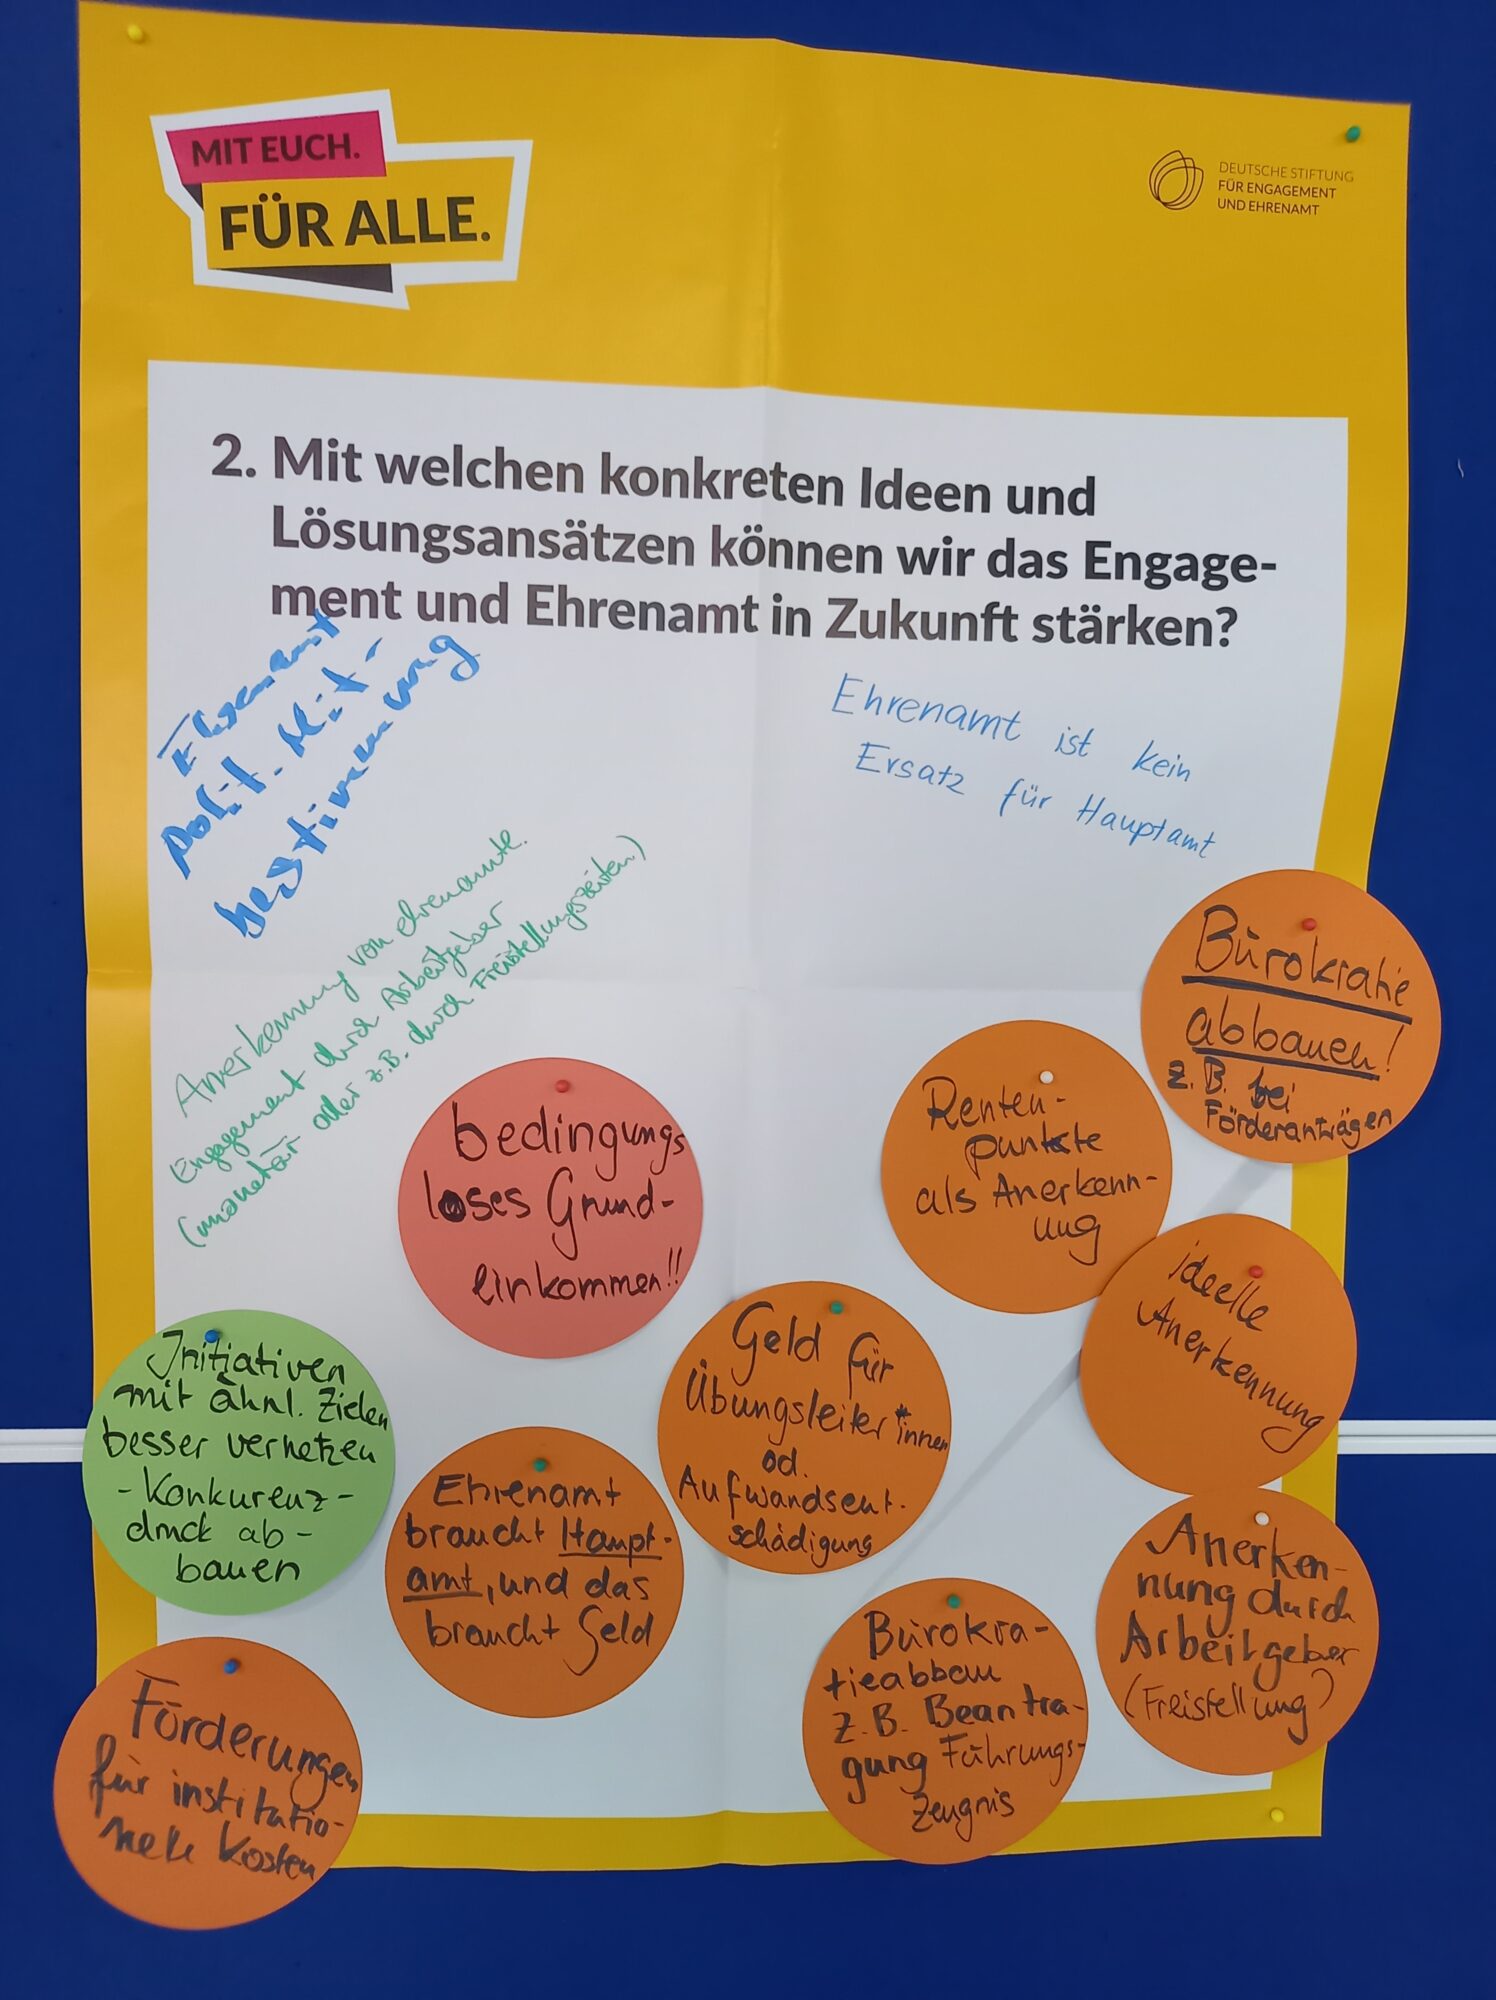 MIT EUCH.
FÜR ALLE.
DEUTSCHE STIFTUNG
FÜR ENGAGEMENT
UND EHRENAMT
2. Mit welchen konkreten Ideen und
Lösungsansätzen können wir das Engage-
ment und Ehrenamt in Zukunft stärken?
Ehrenamt
polit. Mit-
bestimmung
Ehrenamt ist kein
Ersatz für Hauptamt
Anerkennung von ehrenamtl.
Engagement durch Arbeitgeber
(monetär oder z.B. durch Freistellungszeiten)
Bürokratie
abbauen!
z.B. bei
Förderanträgen
Renten-
punkte
als Anerkenn-
ung
bedingungs
loses Grund-
einkommen!!
ideelle
Anerkennung
Geld für
Übungsleiter*innen
od.
Aufwandsent-
schädigung
Initiativen
mit ähnl. Zielen
besser vernetzen
- Konkurenz-
druck ab-
bauen
Ehrenamt
braucht Haupt-
amt, und das
braucht Geld
Anerken-
nung durch
Arbeitgeber
(Freistellung)
Bürokra-
tieabbau
z.B. Beantra-
gung Führungs-
zeugnis
Förderungen
für institutio-
nelle Kosten